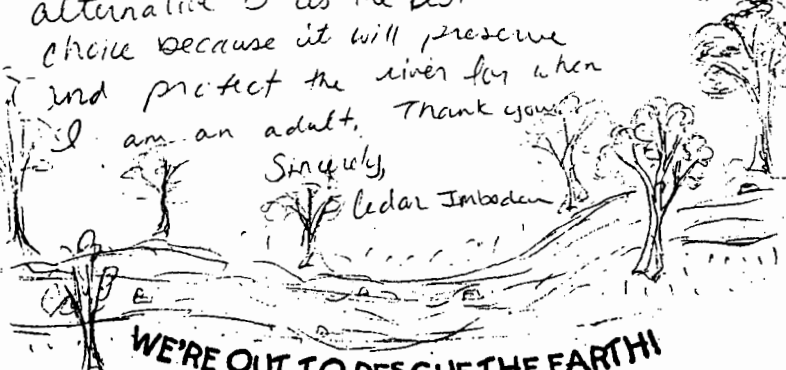 alternative is the best
choice because it will preserve
and protect the river for when
I am an adult. Thank you.
Sincerely,
Cedar Imboden
WE'RE OUT TO RESCUE THE EARTH!